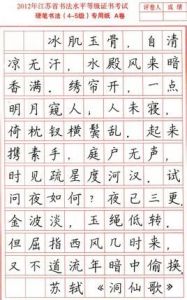 2012年江苏省书法水平等级证书考试
硬笔书法(4-5级)专用纸 A卷
评卷人 成绩
冰肌玉骨,自清
凉无汗,水殿风来暗
香满。绣帘开,一点
明月窥人,人未寝,
倚枕钗横鬓乱。起来
携素手,庭户无声,
时见疏星度河汉。试
问夜如何?夜已三更,
金波淡,玉绳低转。
但屈指西风几时来,
又不道流年暗中偷换
苏轼《洞仙歌》